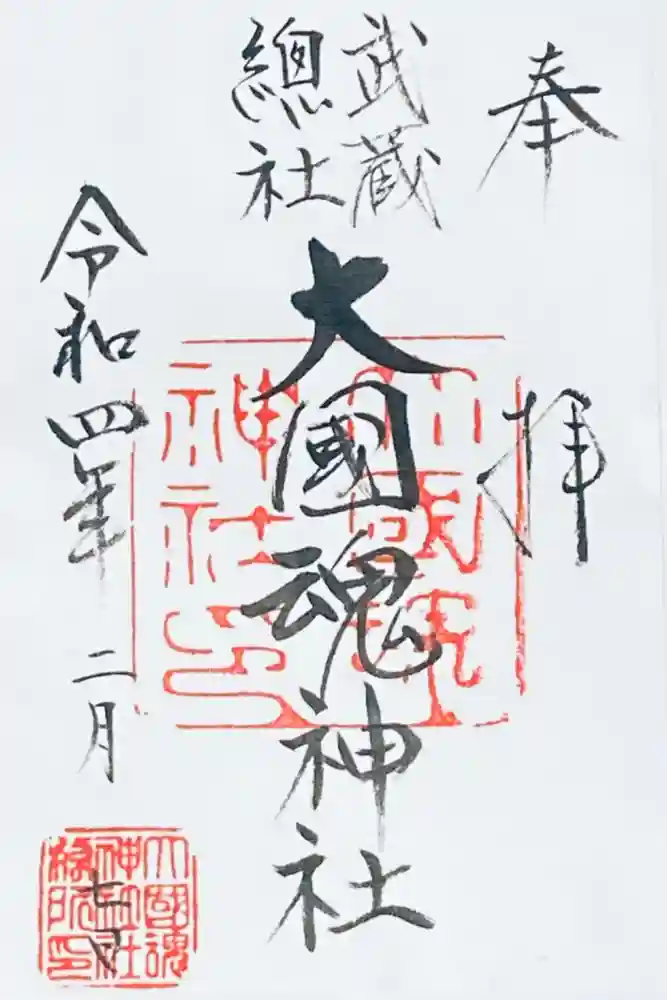 奉
拝
武蔵
總社
大國魂神社
令和四年
二月
七日
大國魂
神社印
大國魂
神社